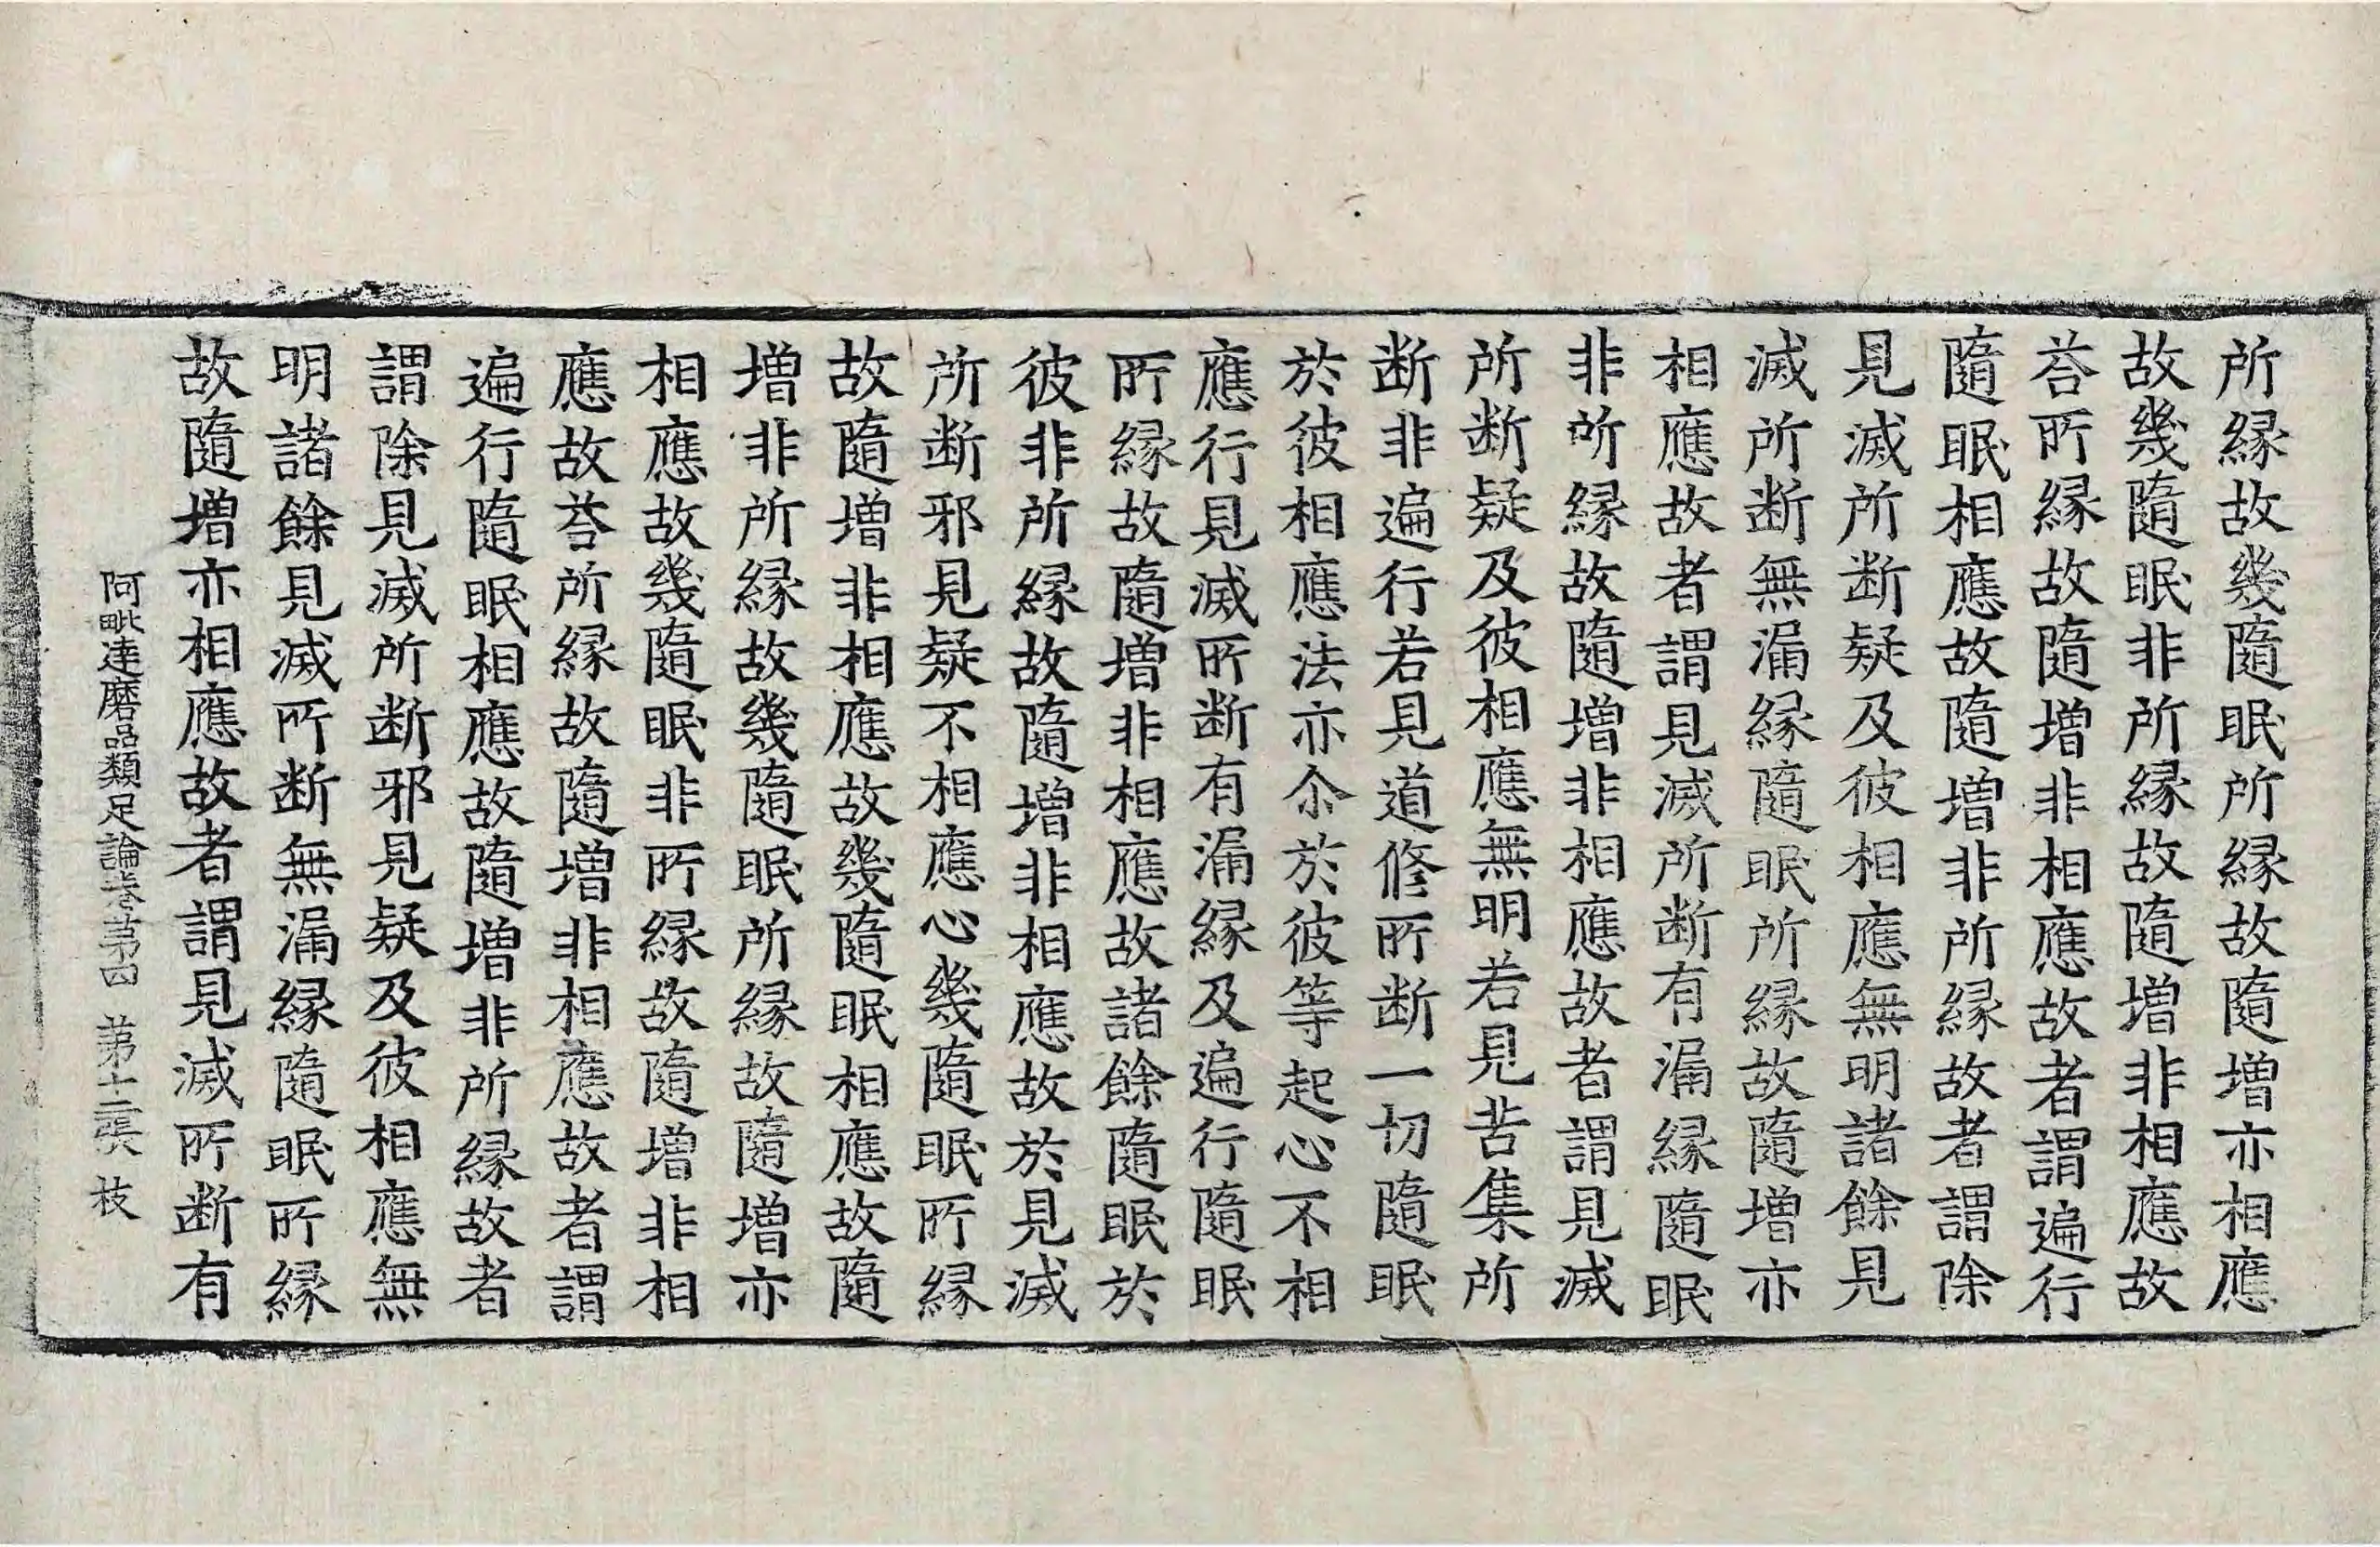 所縁故幾隨眠所縁故隨增亦相應
故幾隨眠非所縁故隨增非相應故
荅所縁故隨增非相應故者謂遍行
隨眠相應故隨增非所縁故者謂除
見滅所断疑及彼相應無明諸餘見
滅所断無漏縁隨眠所縁故隨增亦
相應故者謂見滅所断有漏縁隨眠
非所縁故隨增非相應故者謂見滅
所断疑及彼相應無明若見苦集所
断非遍行若見道修所断一切隨眠
於彼相應法亦尒於彼等起心不相
應行見滅所断有漏縁及遍行隨眠
所縁故隨增非相應故諸餘隨眠於
彼非所縁故隨增非相應故於見滅
所断邪見疑不相應心幾隨眠所縁
故隨增非相應故幾隨眠相應故隨
增非所縁故幾隨眠所縁故隨增亦
相應故幾隨眠非所縁故隨增非相
應故荅所縁故隨增非相應故者謂
遍行隨眠相應故隨增非所縁故者
謂除見滅所断邪見疑及彼相應無
明諸餘見滅所断無漏縁隨眠所縁
故隨增亦相應故者謂見滅所断有
阿毗達磨品類足論卷苐四 苐十二張 枝